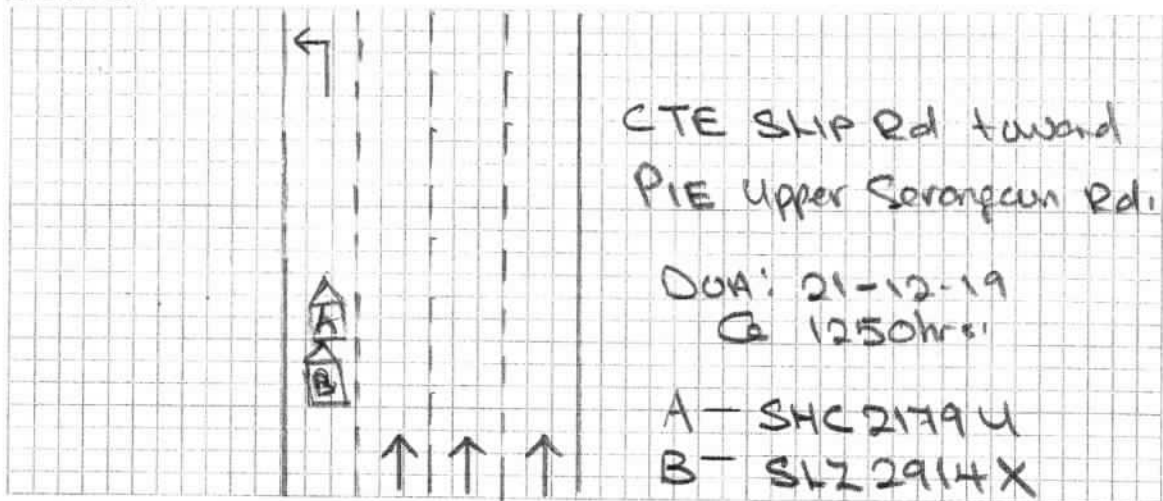 CTE Slip Rd toward
PIE Upper Serangoun Rd.
DOA: 21-12-19
@ 1250hrs.
A
B
A - SHC2179U
B - SLZ2914X